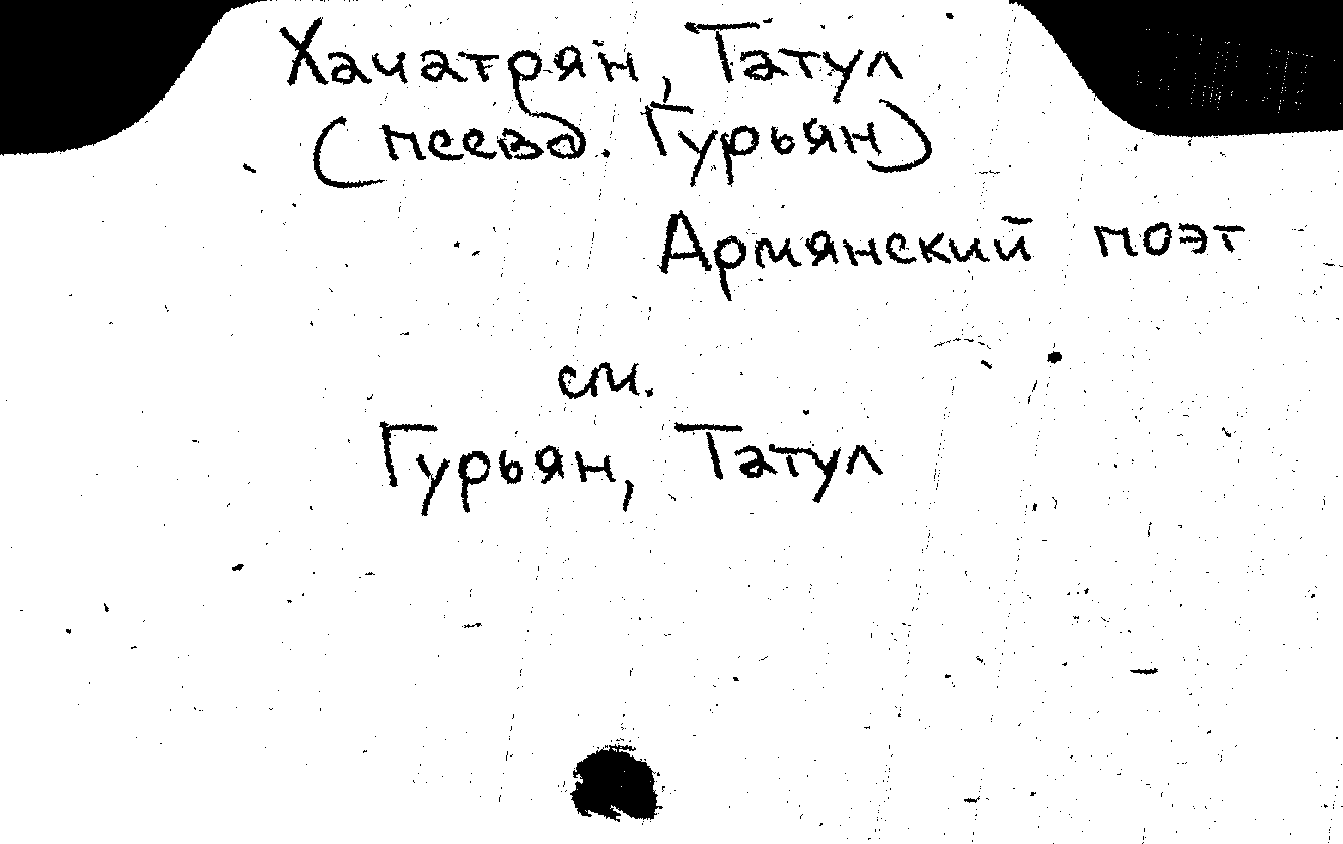 Хачатрян, Татул
(псевд. Гурьян)
Армянский поэт
см.
Гурьян, Татул